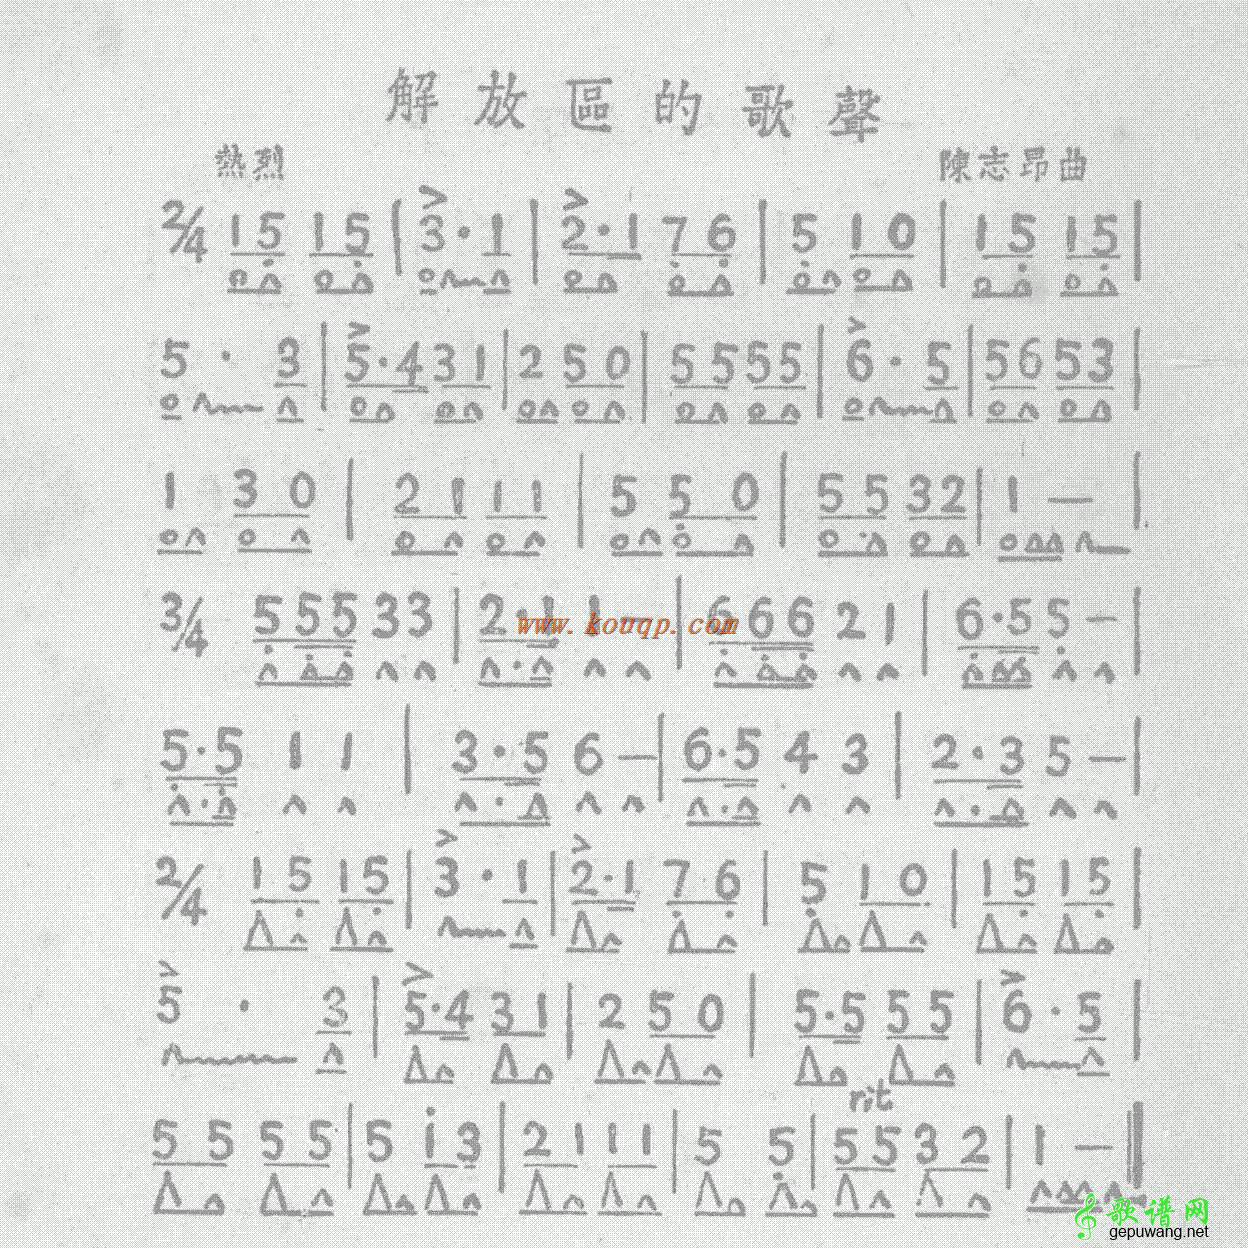 解放區的歌聲
熱烈 陳志昂曲
2/4 1 5 1 5 | 3 · 1 | 2 · 1 7 6 | 5 1 0 | 1 5 1 5 |
5 · 3 | 5 · 4 3 1 | 2 5 0 | 5 5 5 5 | 6 · 5 | 5 6 5 3 |
1 3 0 | 2 1 1 1 | 5 5 0 | 5 5 3 2 | 1 — |
3/4 5 5 5 3 3 | 2 · 1 1 — | 6 6 6 2 1 | 6 · 5 5 — |
www.kouqp.com
5 · 5 1 1 | 3 · 5 6 — | 6 · 5 4 3 | 2 · 3 5 — |
2/4 1 5 1 5 | 3 · 1 | 2 · 1 7 6 | 5 1 0 | 1 5 1 5 |
5 · 3 | 5 · 4 3 1 | 2 5 0 | 5 · 5 5 5 | 6 · 5 |
rit
5 5 5 5 | 5 i 3 | 2 1 1 1 | 5 5 | 5 5 3 2 | 1 — ‖
歌谱网
gepuwang.net